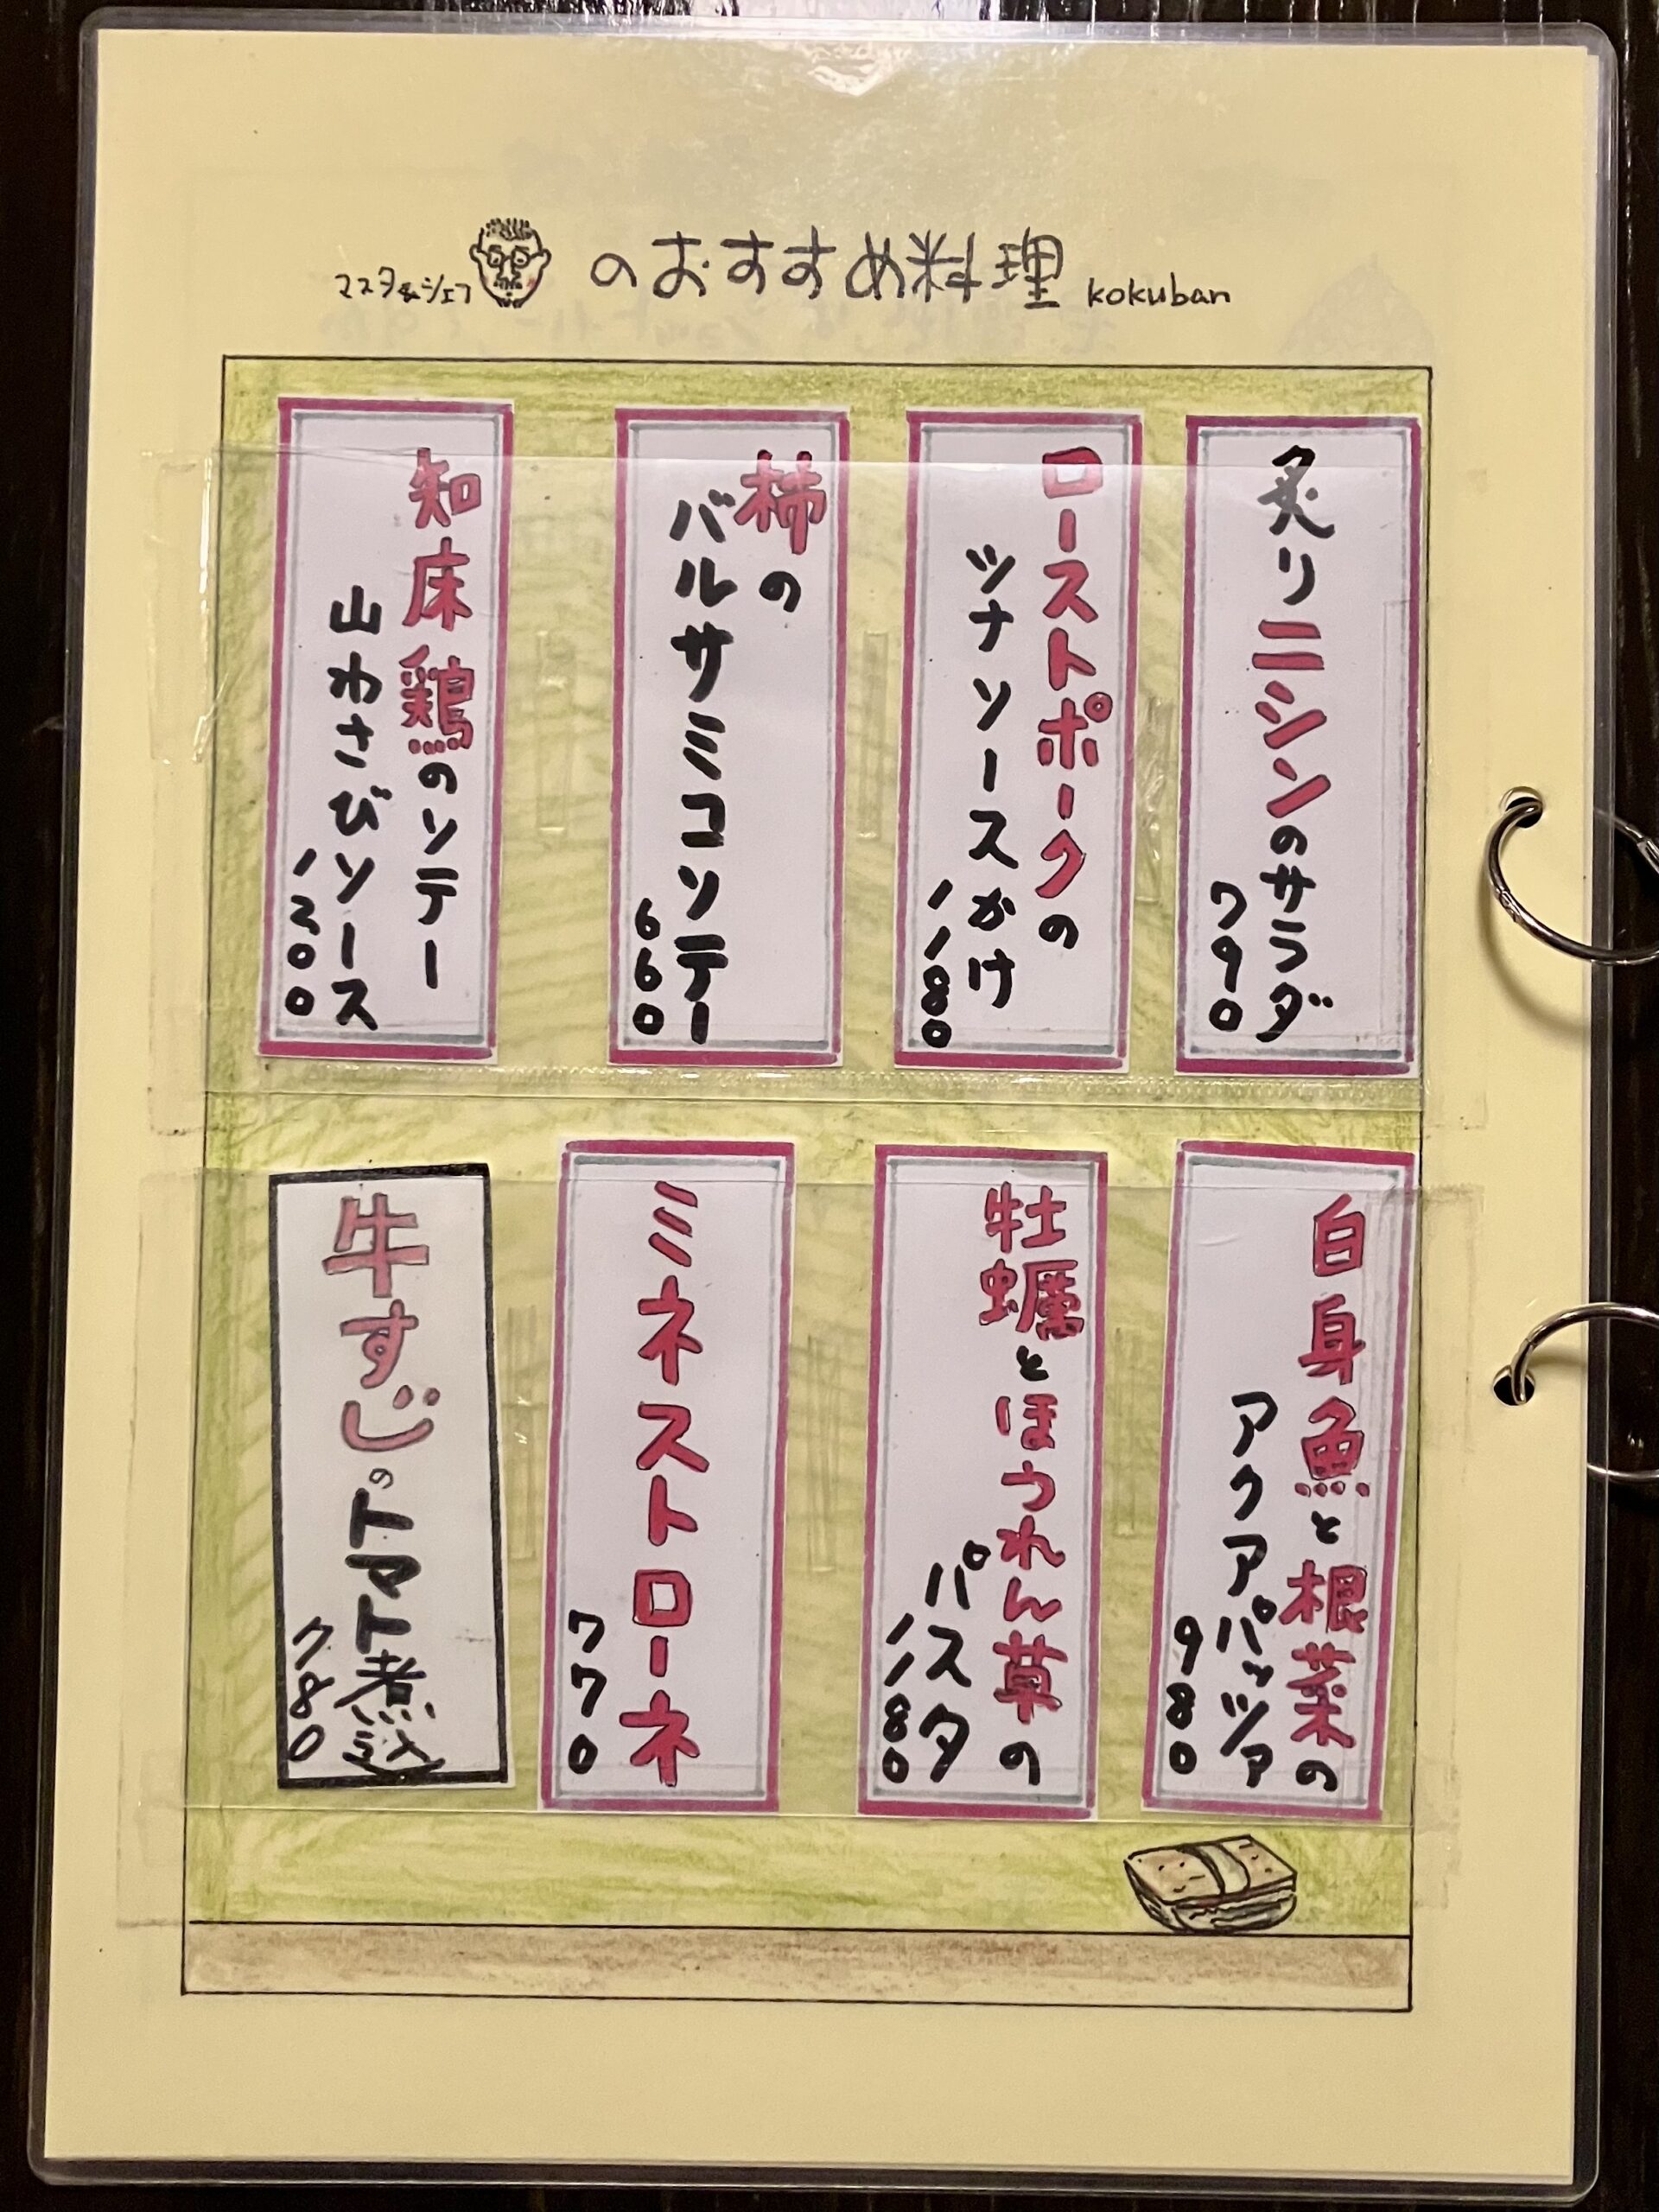 マスター&シェフ のおすすめ料理 kokuban
炙りニシンのサラダ
790
ローストポークの
ツナソースかけ
1180
柿の
バルサミコソテー
660
知床鶏のソテー
山わさびソース
1200
白身魚と根菜の
アクアパッツァ
980
牡蠣とほうれん草の
パスタ
1180
ミネストローネ
770
牛すじのトマト煮込
780